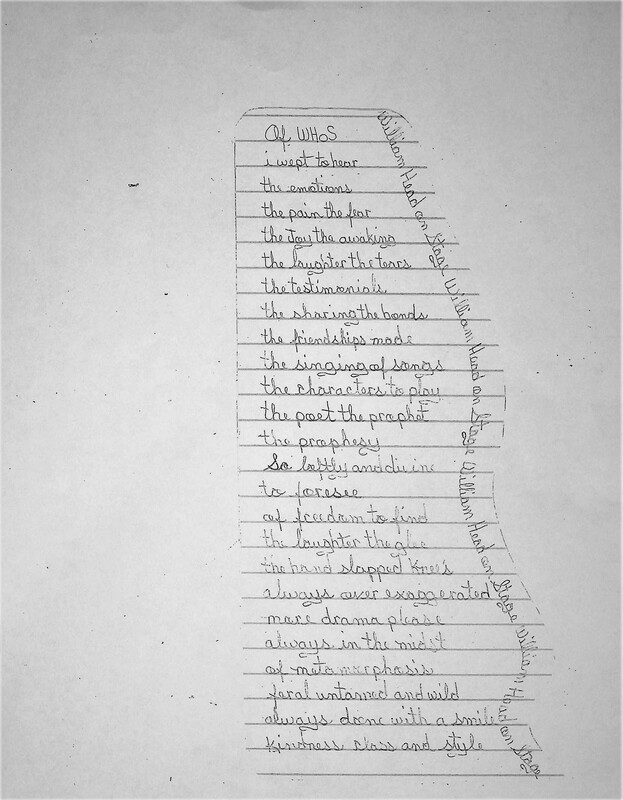 Of WHoS
i wept to hear
the emotions
the pain the fear
the Joy the awaking
the laughter the tears
the testimonials
the sharing the bonds
the friendships made
the singing of songs
the characters to play
the poet the prophet
the prophesy
So loftly and divine
to foresee
of freedom to find
the laughter the glee
the hand slapped knees
always over exaggerated
more drama please
always in the midst
of metamorphosis
feral untamed and wild
always done with a smile
kindness class and style
William Head on Stage William Head on Stage William Head on Stage William Head on Stage